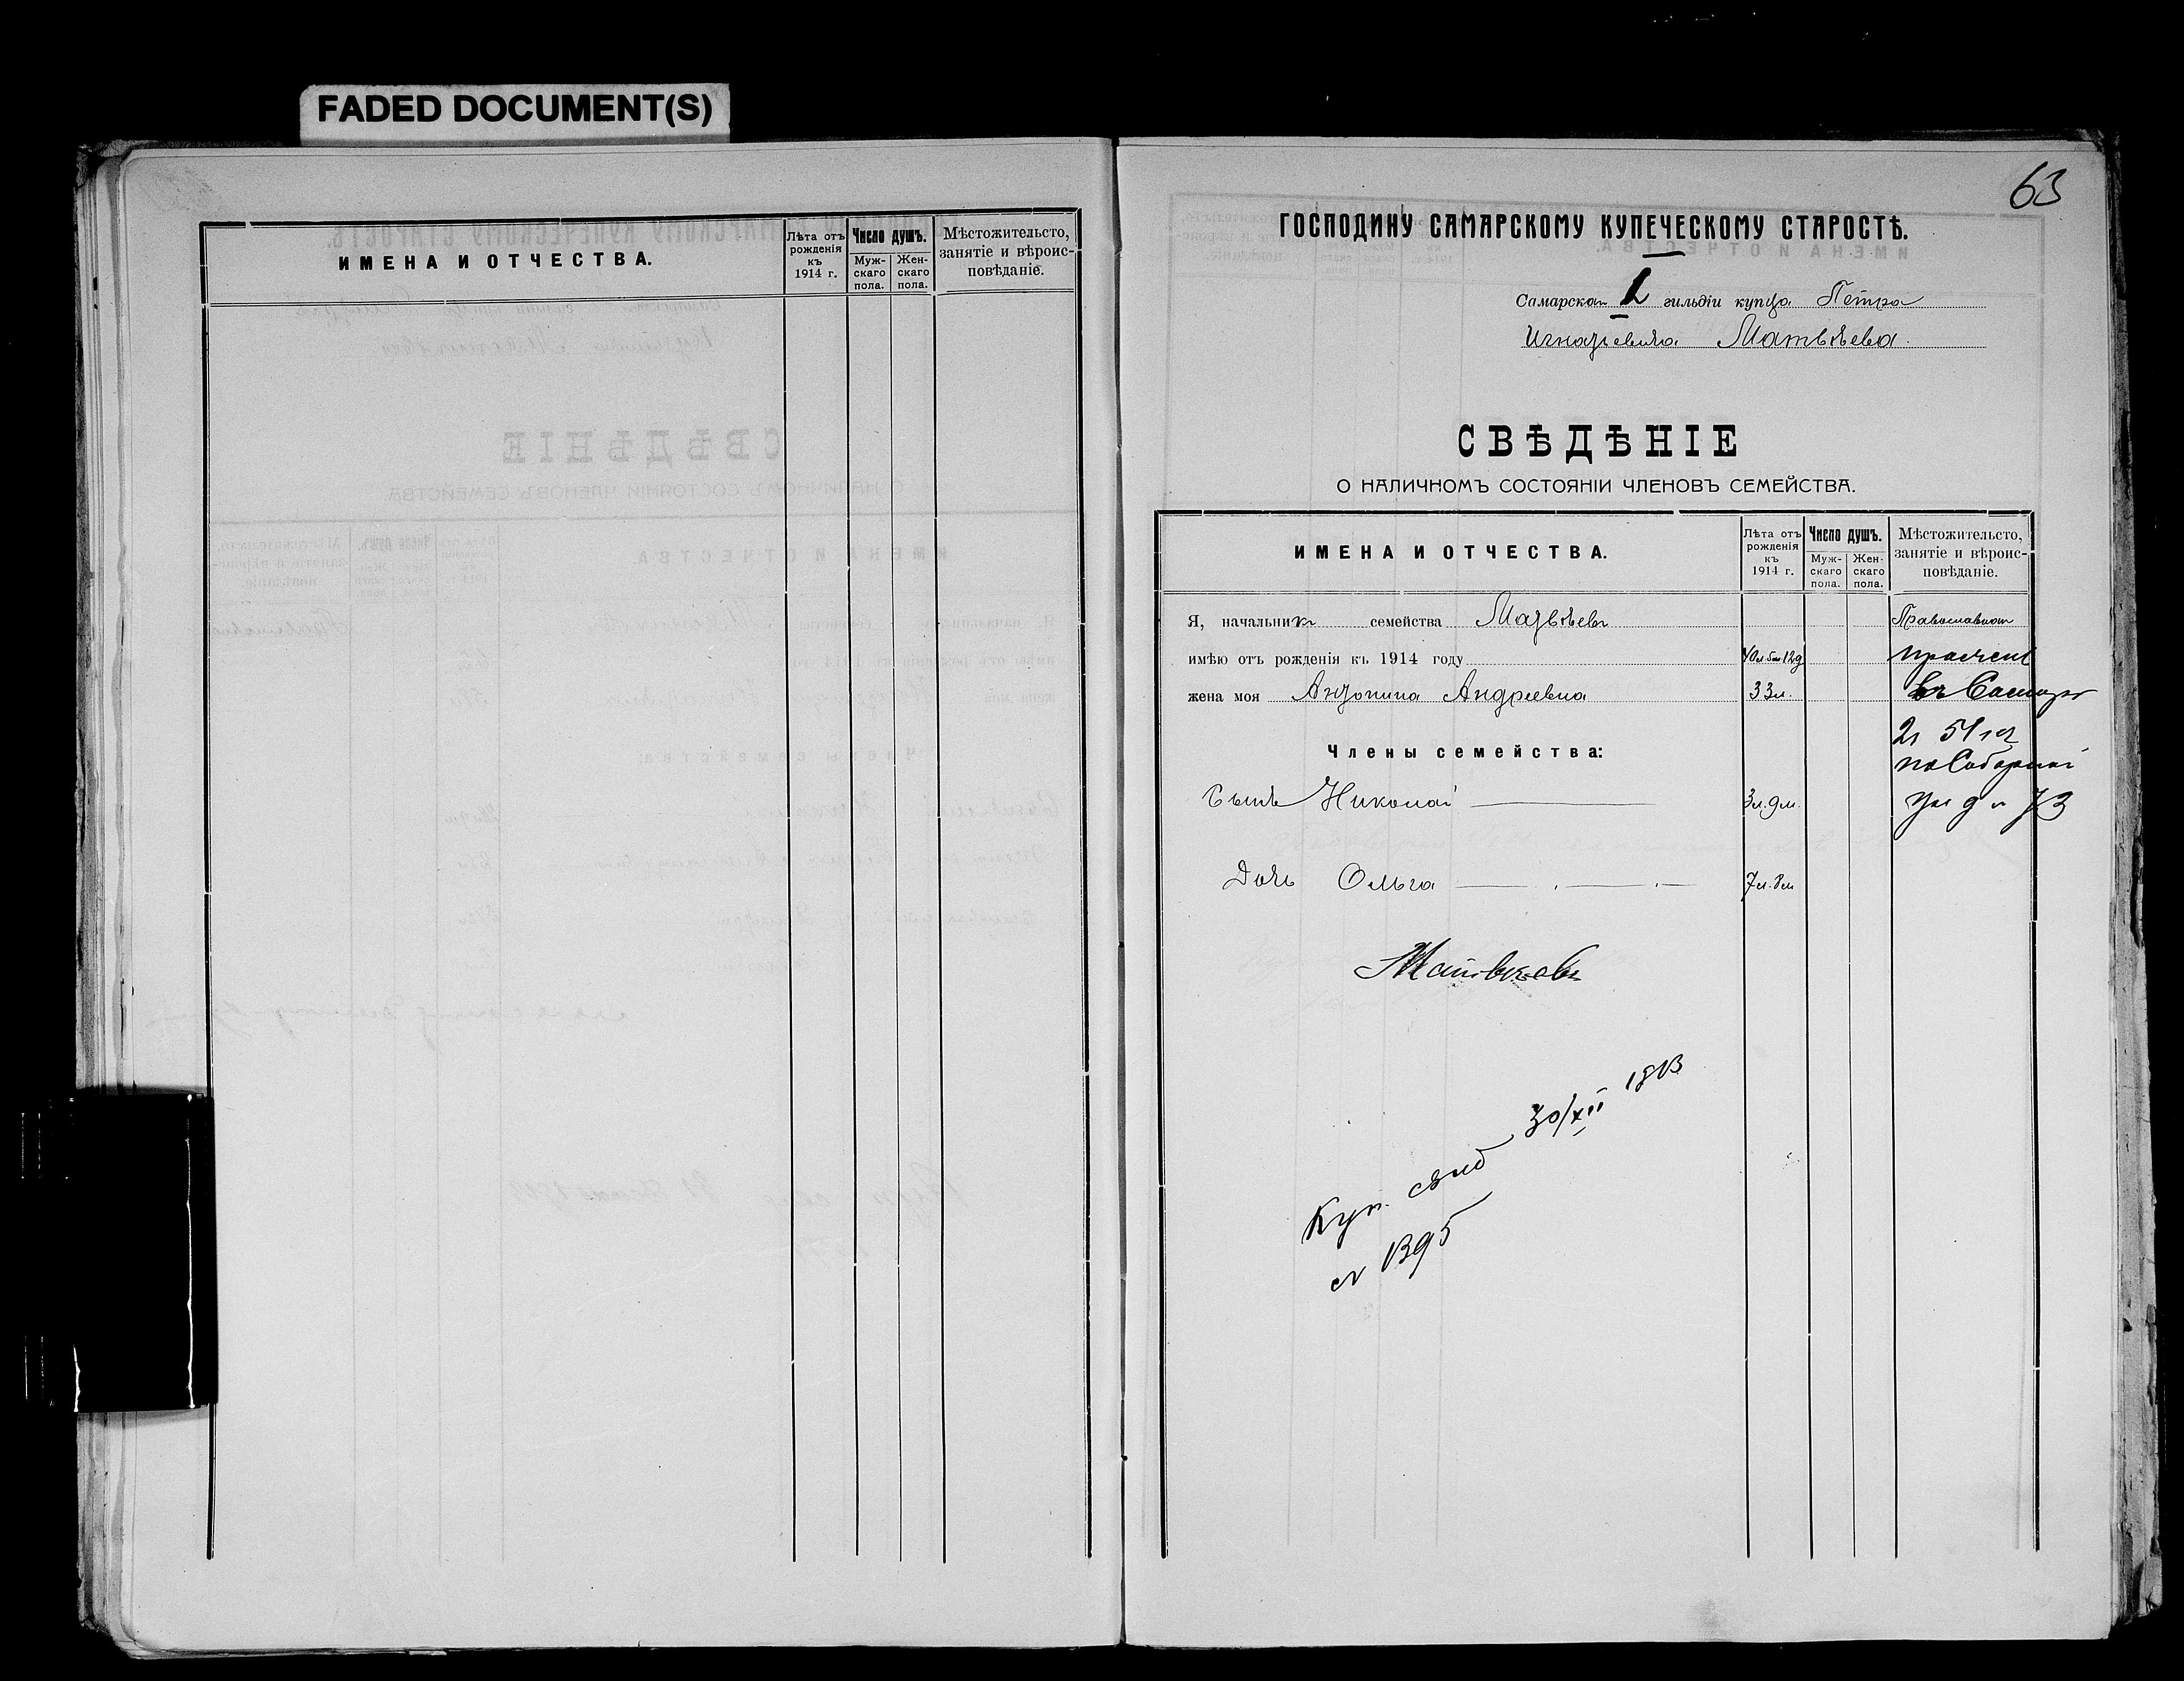 FADED DOCUMENT(S)
ИМЕНА И ОТЧЕСТВА.
Лѣта отъ рожденія къ 1914 г.
Число душъ.
Муж-скаго пола.
Жен-скаго пола.
Мѣстожительсто, занятіе и вѣроис-повѣданіе.
63
ГОСПОДИНУ САМАРСКОМУ КУПЕЧЕСКОМУ СТАРОСТѢ.
Самарска гильдіи купца Петра
Игнатьевича Матвѣева.
СВѢДѢНІЕ
О НАЛИЧНОМЪ СОСТОЯНІИ ЧЛЕНОВЪ СЕМЕЙСТВА.
ИМЕНА И ОТЧЕСТВА.
Лѣта отъ рожденія къ 1914 г.
Число душъ.
Муж-скаго пола.
Жен-скаго пола.
Мѣстожительсто, занятіе и вѣроис-повѣданіе.
Я, начальникъ семейства Матвѣевъ
имѣю отъ рожденія къ 1914 году 40л 5м 12д
жена моя Антонина Андреевна 33л.
въ Самарѣ
Члены семейства:
по Соборной
Сынъ Николай 3л. 9м.
73
Дочь Ольга 7л. 8м
Матвѣевъ
Куп. свид 30/XII 1913
№ 1395